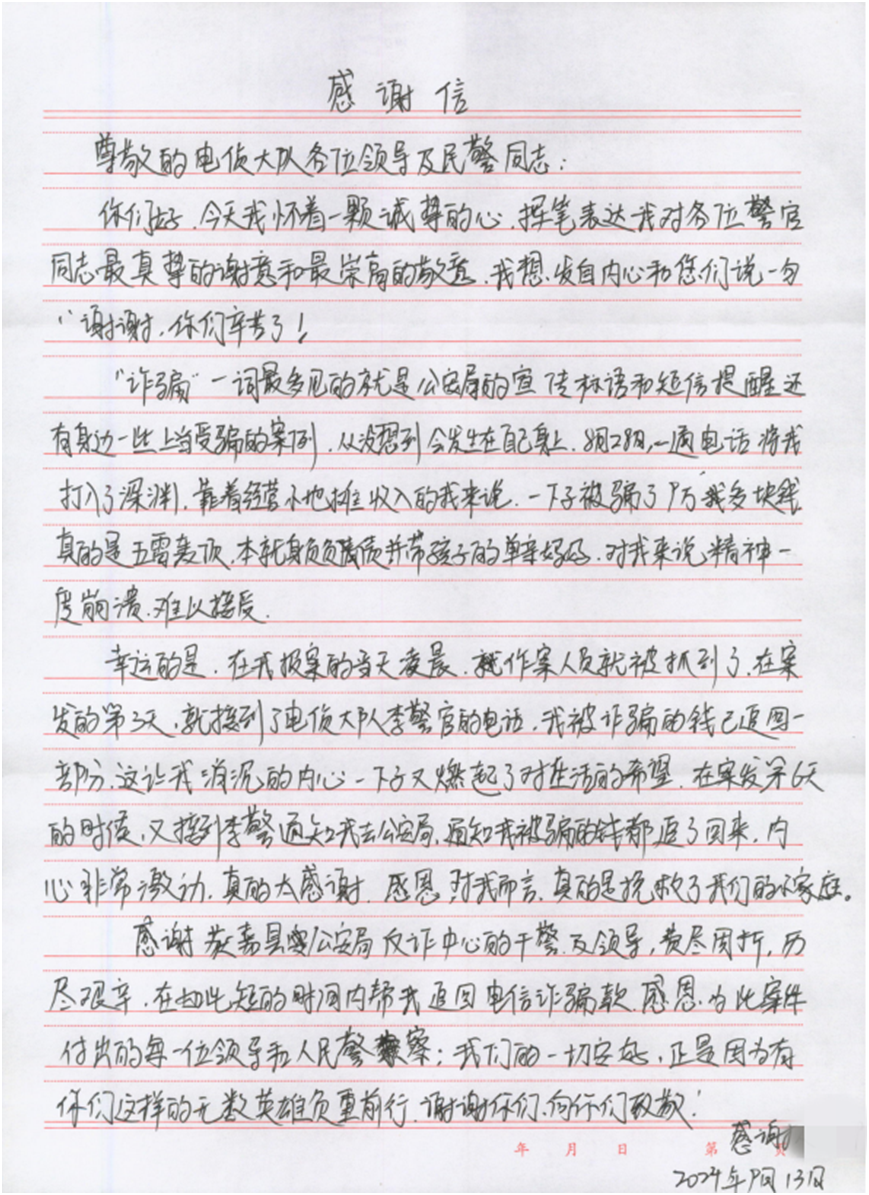 感谢信
尊敬的电侦大队各位领导及民警同志：
你们好，今天我怀着一颗诚挚的心，挥笔表达我对各位警官
同志最真挚的谢意和最崇高的敬意，我想发自内心和您们说一句
“谢谢，你们辛苦了！
“诈骗”一词最多见的就是公安局的宣传标语和短信提醒还
有身边一些上当受骗的案例，从没想到会发生在自己身上，8月28日，一通电话将我
打入了深渊，靠着经营小地摊收入的我来说，一下子被骗了9万多块钱
真的是五雷轰顶，本就身负债并带孩子的单亲妈妈，对我来说精神一
度崩溃，难以接受，
幸运的是，在我报案的当天凌晨，作案人员就被抓到了，在案
发的第3天，就接到了电侦大队李警官的电话，我被诈骗的钱已追回一
部分，这让我消沉的内心一下子又燃起了对生活的希望，在案发第6天
的时候，又接到李警通知我去公安局，通知我被骗的钱都追了回来，内
心非常激动，真的太感谢，感恩，对我而言，真的是挽救了我们的小家庭。
感谢获嘉县公安局反诈中心的干警及领导，费尽周折，历
尽艰辛，在如此短的时间内帮我追回电信诈骗款，感恩为此案件
付出的每一位领导和人民警察；我们的一切安好，正是因为有
你们这样的无数英雄负重前行，谢谢你们，向你们致敬！
感谢人
年 月 日 第 页
2024年9月13日